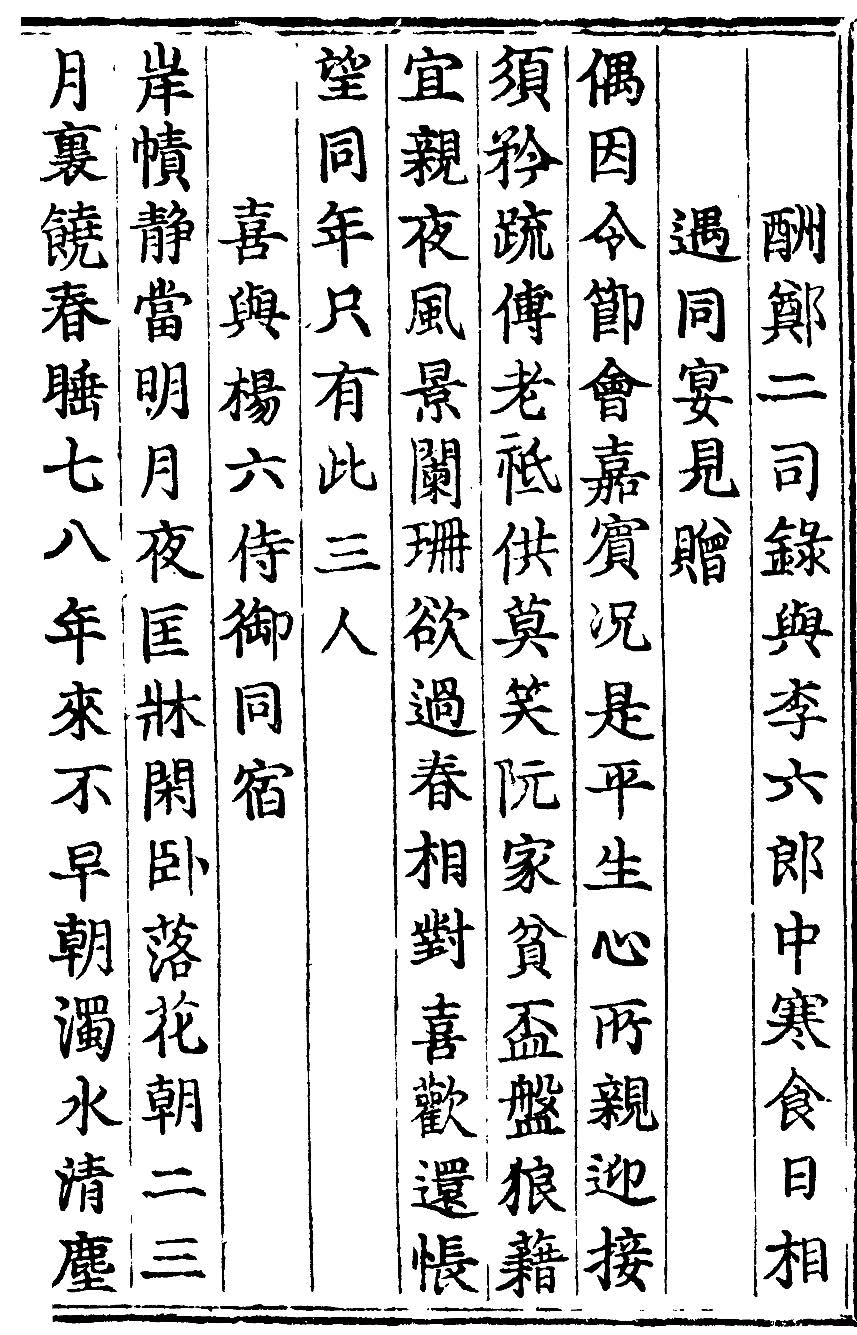 酬鄭二司錄與李六郎中寒食日相
遇同宴見贈
偶因令節會嘉賔况是平生心所親迎接
須矜疏傅老祗供莫笑阮家貧盃盤狼藉
宜親夜風景闌珊欲過春相對喜歡還悵
望同年只有此三人
喜與楊六侍御同宿
岸幘静當明月夜匡牀閑卧落花朝二三
月裏饒春睡七八年來不早朝濁水清塵